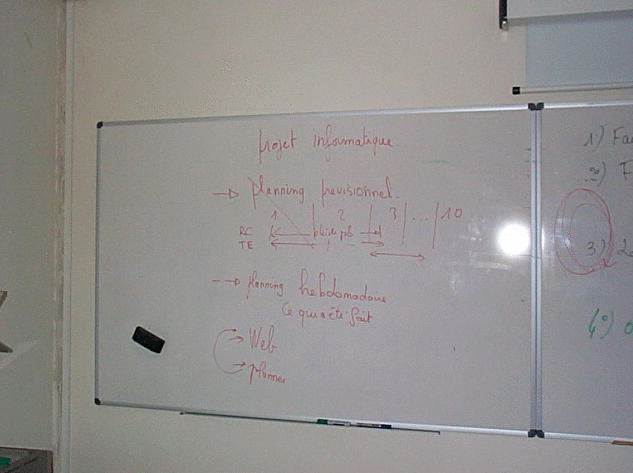 projet informatique.
planning previsionnel.
1 2 3 ... 10
RC
TE
planning hebdomadaire
Ce qui a été fait
Web
1) Fa
2) F
3)
4)